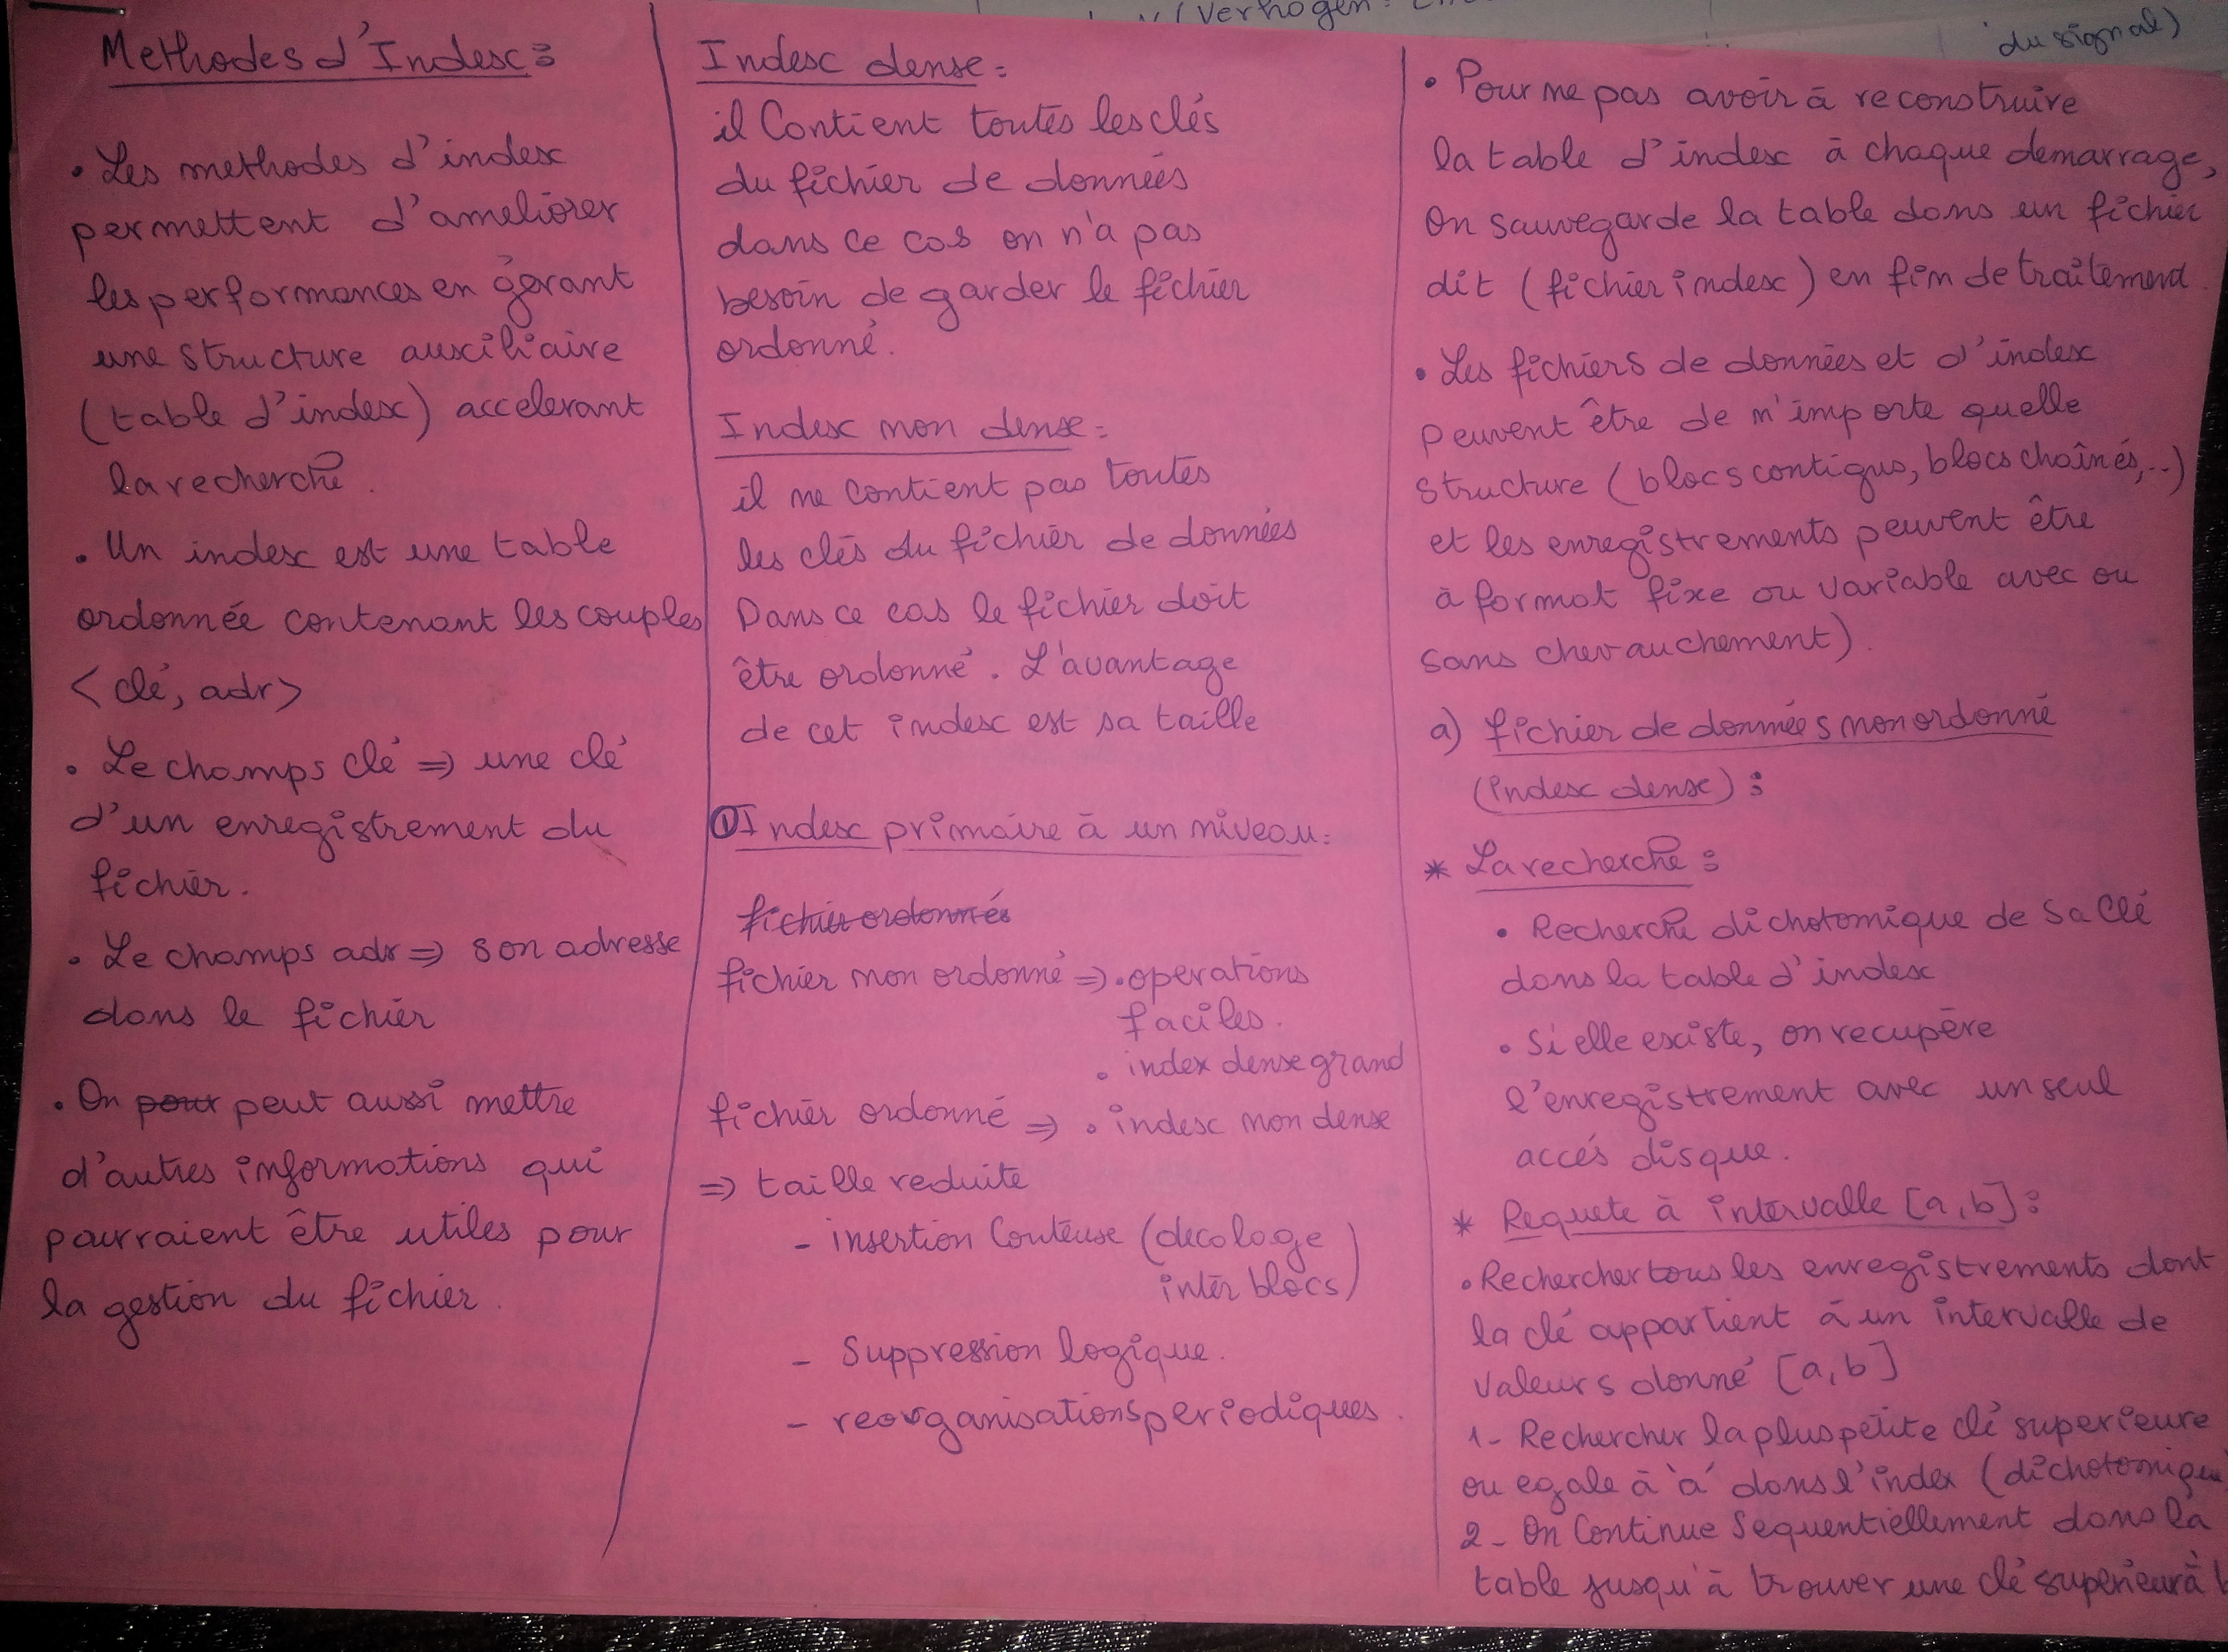 Verhogen:
du signal)
Methodes d'Index:
• Les methodes d'index
permettent d'ameliorer
les performances en gérant
une structure auxiliaire
(table d'index) accelerant
la recherche.
• Un index est une table
ordonnée contenant les couples
<clé, adr>
• Le champs clé => une clé
d'un enregistrement du
fichier.
• Le champs adr => son adresse
dans le fichier
• On pour peut aussi mettre
d'autres informations qui
pourraient être utiles pour
la gestion du fichier.
Index dense:
il Contient toutes les clés
du fichier de données
dans ce cas on n'a pas
besoin de garder le fichier
ordonné.
Index non dense:
il ne contient pas toutes
les clés du fichier de données
Dans ce cas le fichier doit
être ordonné. L'avantage
de cet index est sa taille
① Index primaire à un niveau:
fichier ordonnés
fichier non ordonné => • operations
faciles.
• index dense grand
fichier ordonné => • index non dense
=> taille reduite
- insertion Couteuse (decalage
inter blocs)
- Suppression logique.
- reorganisations periodiques.
• Pour ne pas avoir à reconstruire
la table d'index à chaque demarrage,
On sauvegarde la table dans un fichier
dit (fichier index) en fin de traitement.
• Les fichiers de données et d'index
peuvent être de n'importe quelle
structure (blocs contigus, blocs chaînés,..)
et les enregistrements peuvent être
à format fixe ou variable avec ou
sans chevauchement).
a) fichier de données non ordonné
(index dense):
* La recherche:
• Recherche dichotomique de sa clé
dans la table d'index
• Si elle existe, on recupère
l'enregistrement avec un seul
accés disque.
* Requete à intervalle [a,b]:
• Rechercher tous les enregistrements dont
la clé appartient à un intervalle de
valeurs donné [a,b]
1- Rechercher la plus petite clé superieure
ou egale à 'a' dans l'index (dichotomique
2- On Continue Sequentiellement dans la
table jusqu'à trouver une clé superieur à b